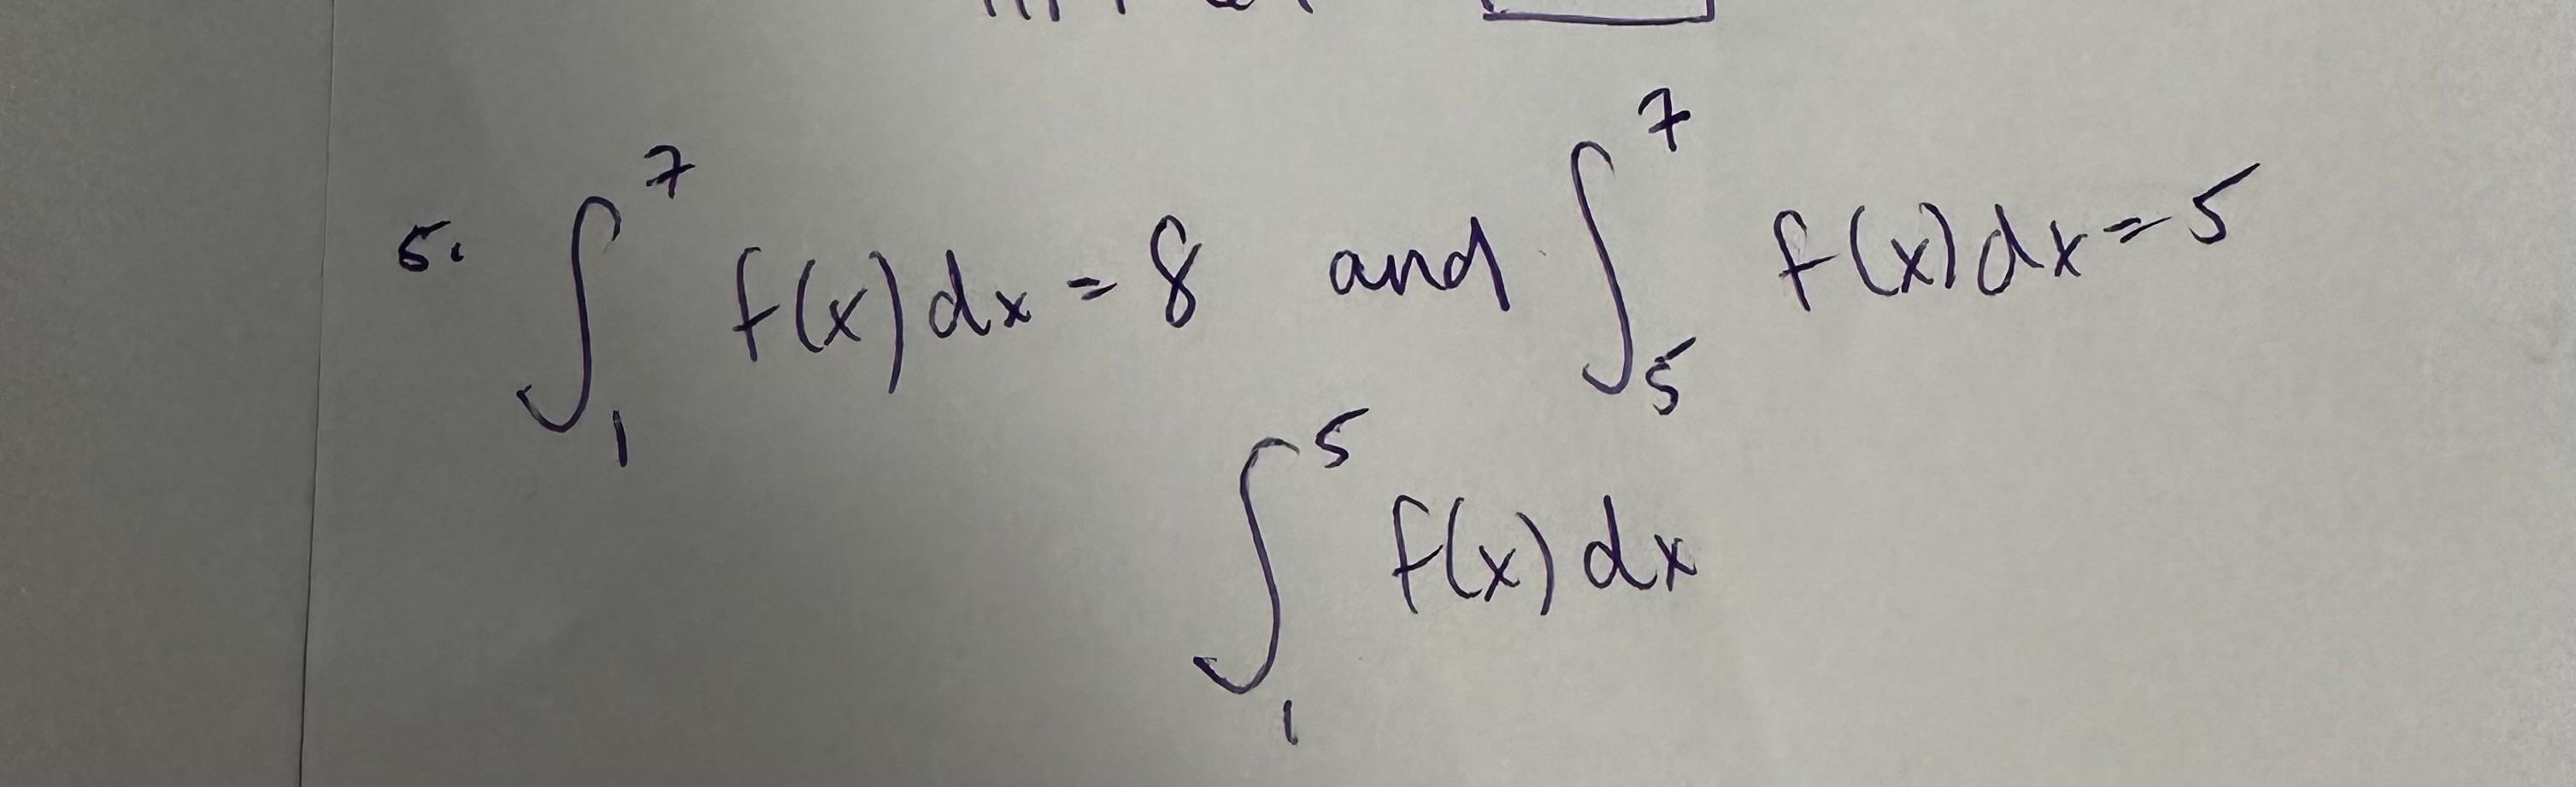 5. ∫₁⁷ f(x) dx = 8 and ∫₅⁷ f(x) dx = 5
∫₁⁵ f(x) dx